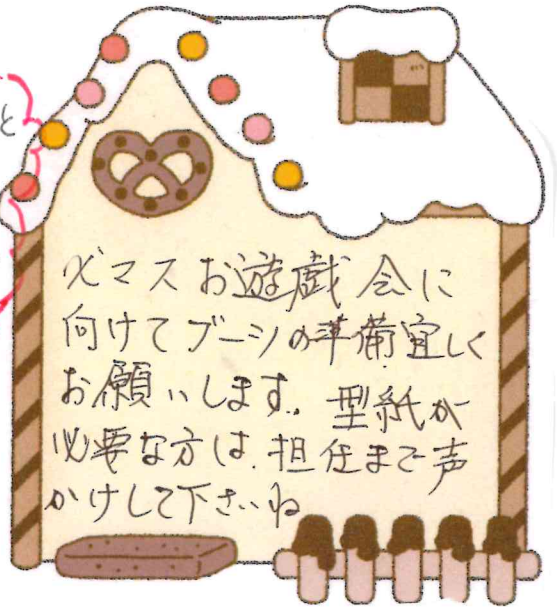 と
Xマスお遊戯会に
向けてブーツの準備宜しく
お願いします。型紙が
必要な方は、担任まで声
かけして下さいね